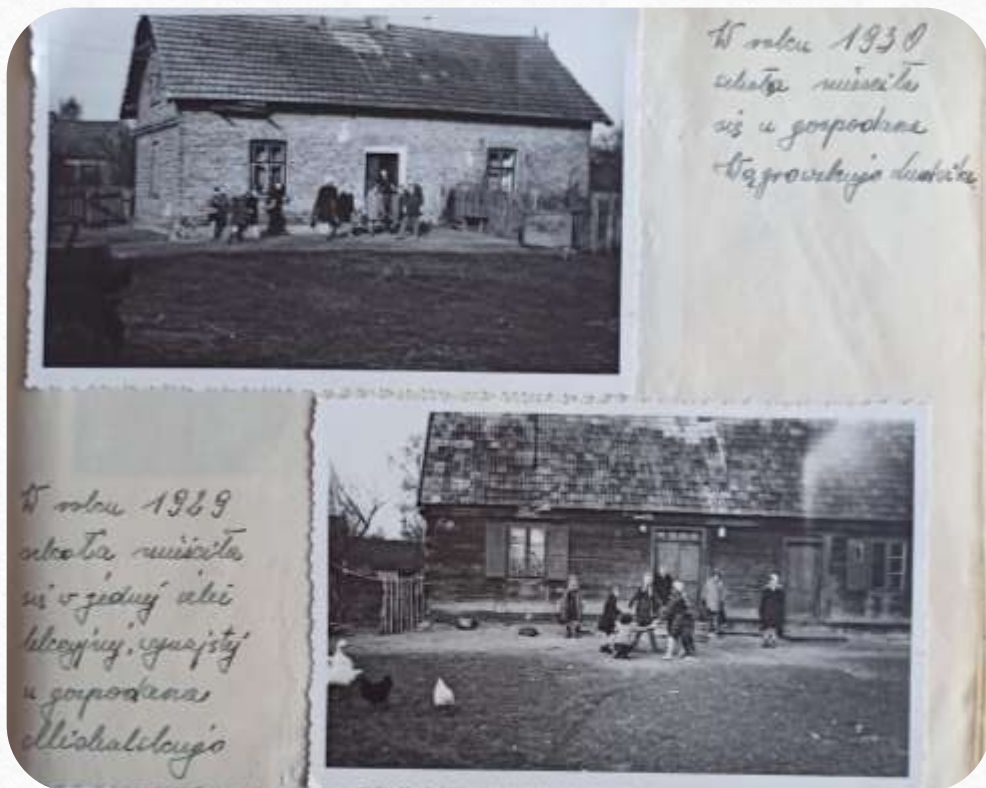 W roku 1930
szkoła mieściła
się u gospodarza
Wągrowskiego Ludwika
W roku 1929
szkoła mieściła
się w jednej izbie
lekcyjnej, wynajętej
u gospodarza
Michalskiego